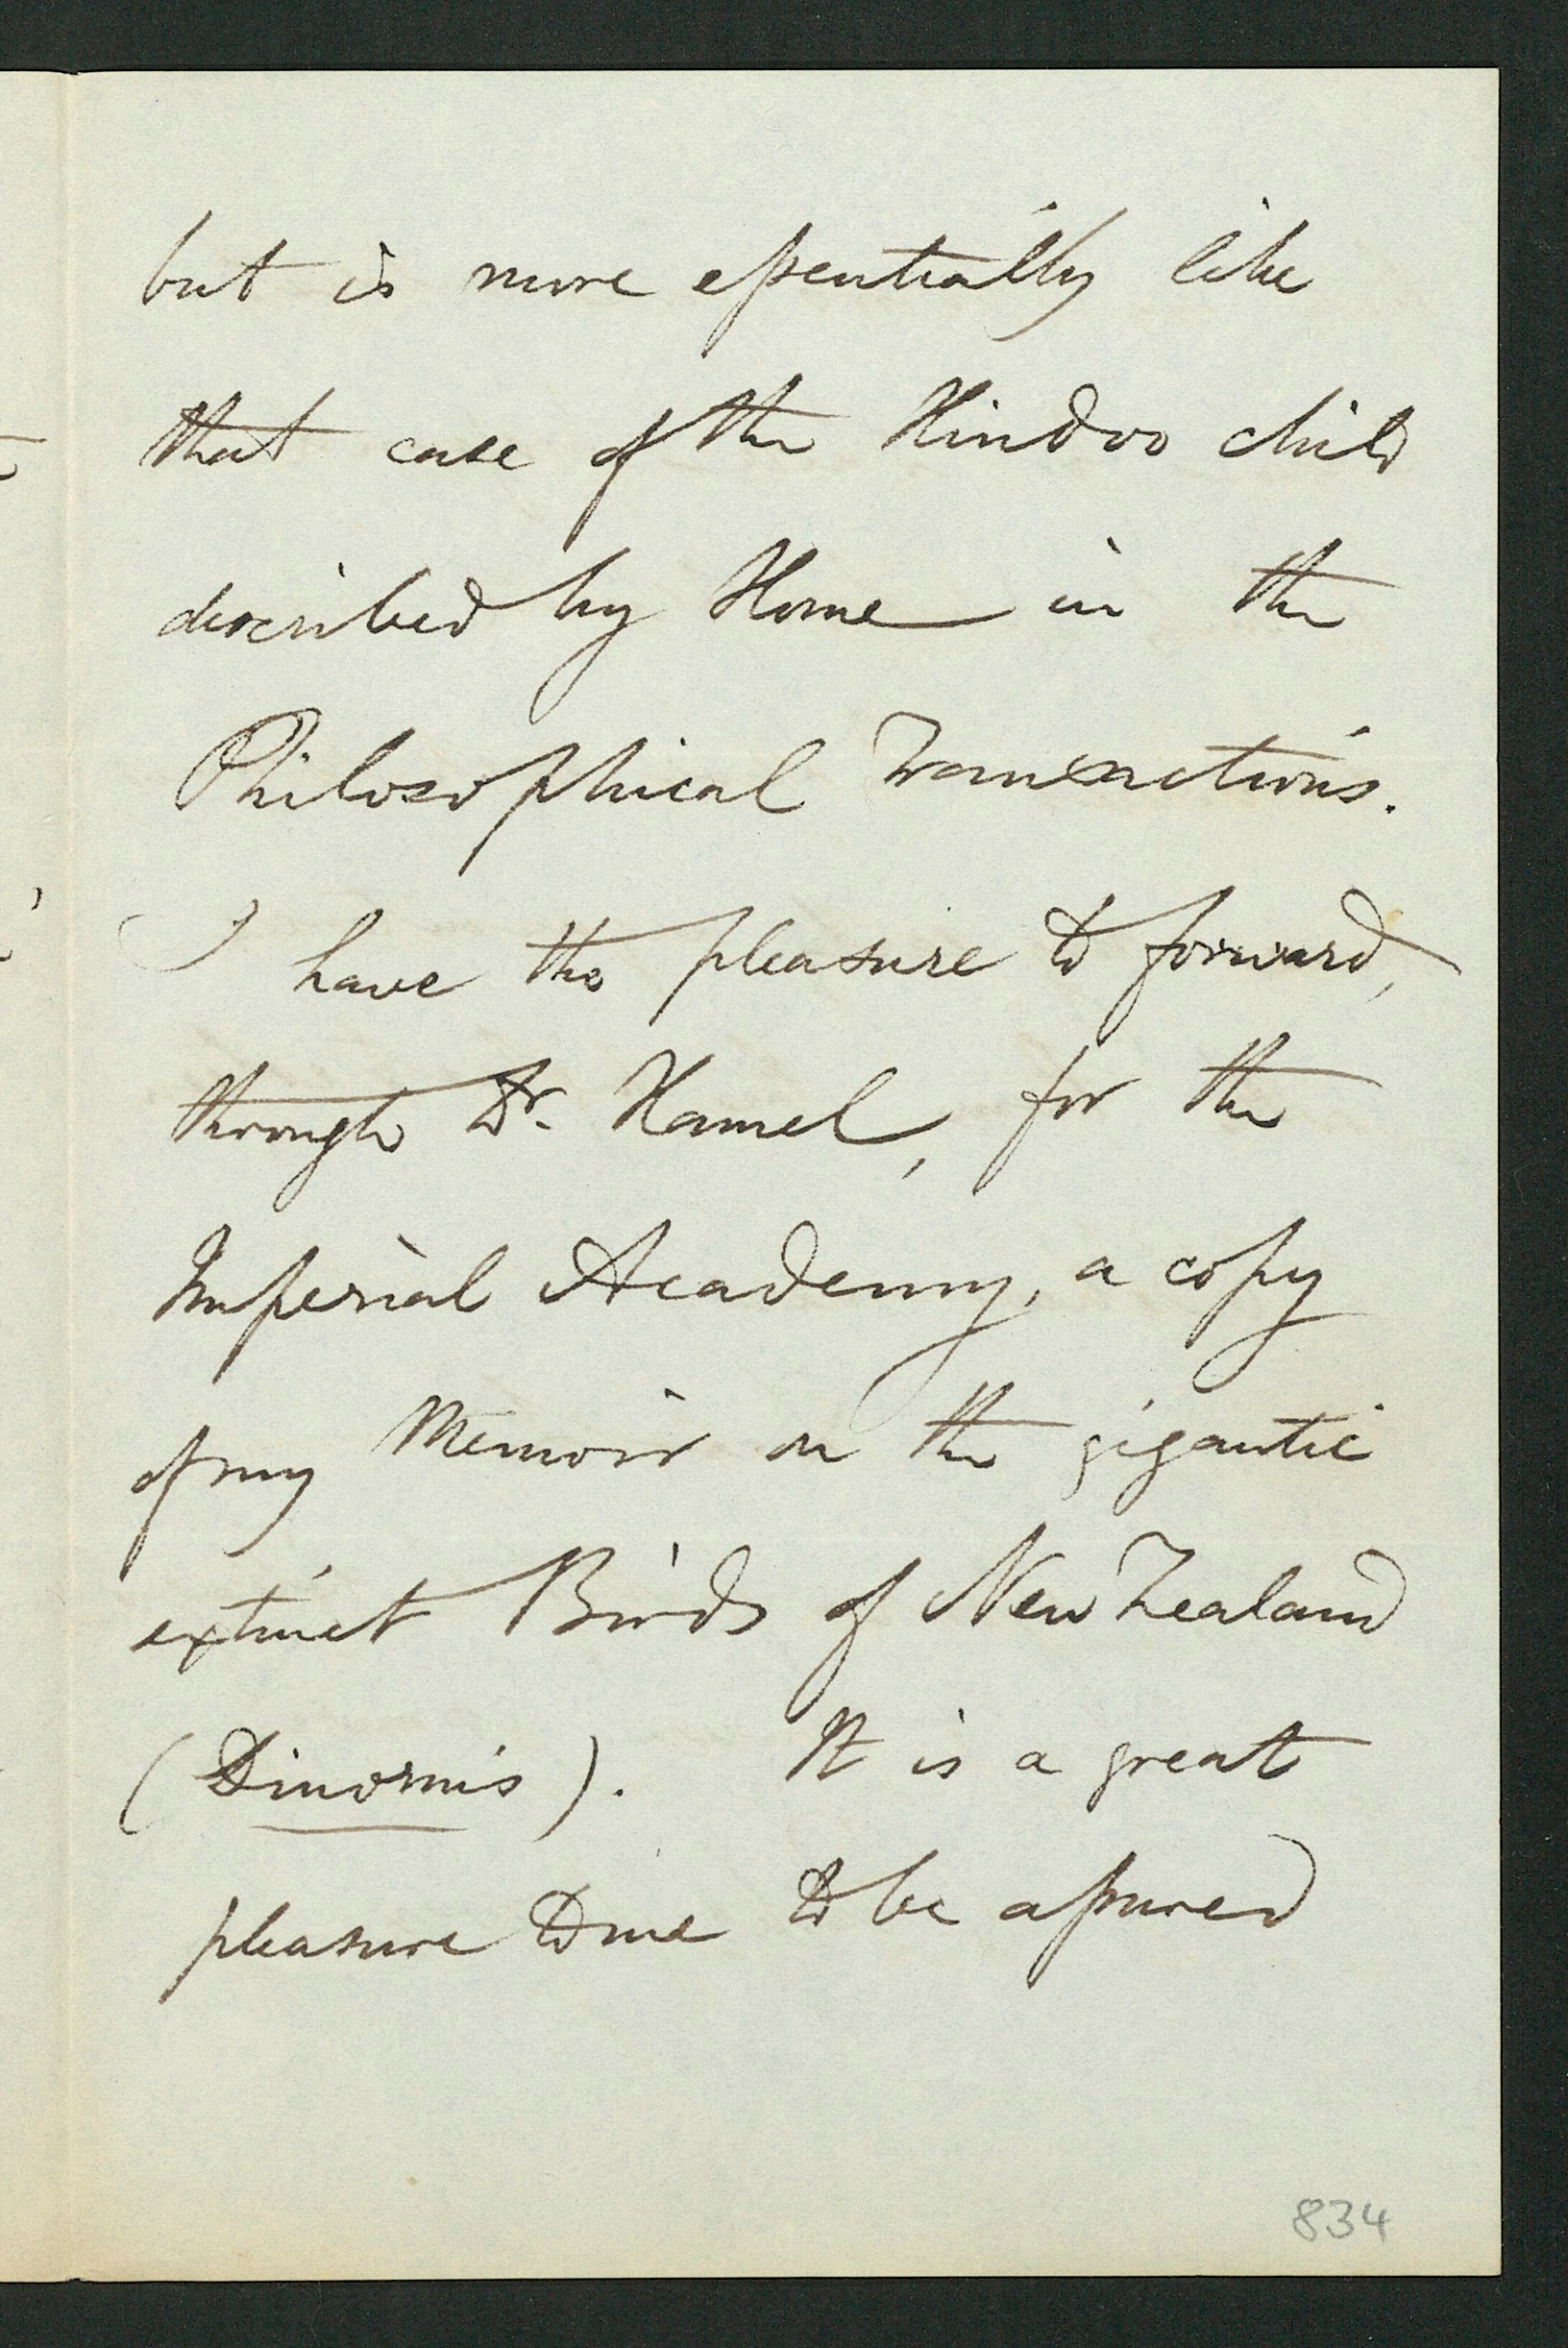 but is more essentially like
that case of the Hindoo child
described by Home in the
Philosophical Transactions.
I have the pleasure to forward,
through Dr. Hamel, for the
Imperial Academy, a copy
of my Memoir on the gigantic
extinct Birds of New Zealand
(Dinornis). It is a great
pleasure to me to be assured
834